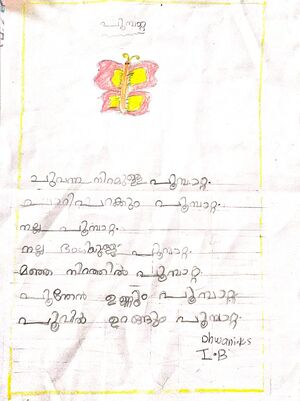 പൂമ്പാറ്റ
ചുവന്ന നിറമുള്ള പൂമ്പാറ്റ.
പാറിപറക്കും പൂമ്പാറ്റ.
നല്ല പൂമ്പാറ്റ.
നല്ല ഭംഗിയുള്ള പൂമ്പാറ്റ.
മഞ്ഞ നിറത്തിൽ പൂമ്പാറ്റ.
പൂന്തേൻ ഉണ്ണും പൂമ്പാറ്റ.
പൂവിൽ ഉറങ്ങും പൂമ്പാറ്റ.
Dhwani.K.S
I.B